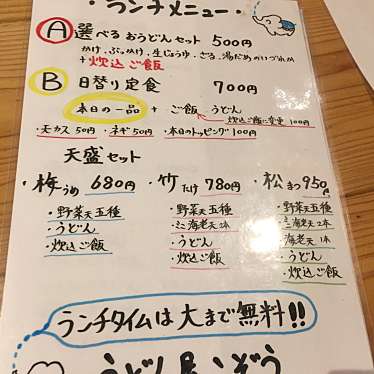 ・ランチメニュー・
Ⓐ選べる おうどんセット 500円
かけ、ぶっかけ、生じょうゆ、ざる、湯だめのいづれか
+ 炊込ご飯
Ⓑ日替り定食 700円
本日の一品 + ご飯 うどん
炊込ご飯に変更 100円
・天カス50円 ・ネギ50円 ・本日のトッピング100円
天盛セット
・梅うめ 680円 ・竹たけ 780円 ・松まつ950円
・野菜天五種 ・野菜天五種 ・野菜天五種
・うどん ・ミニ海老天2本 ・ミニ海老天2本
・炊込ご飯 ・うどん ・海老天1本
・炊込ご飯 ・うどん
・炊込ご飯
ランチタイムは大まで無料!!
うどん屋こぞう